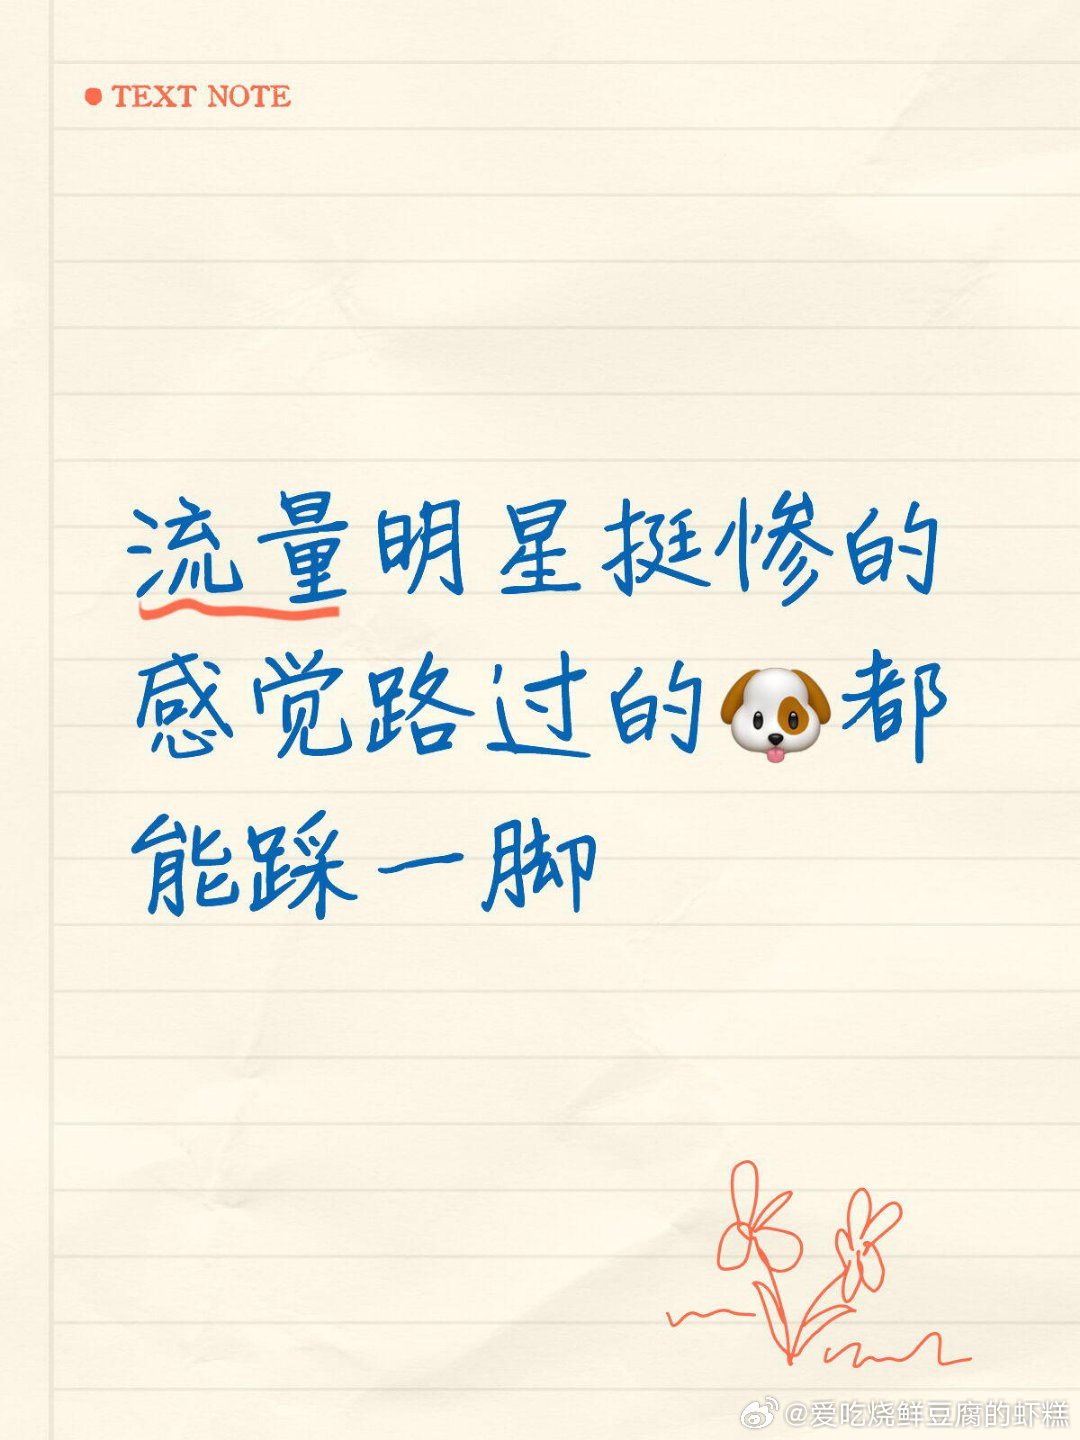 TEXT NOTE
流量明星挺惨的
感觉路过的🐶都
能踩一脚
@爱吃烧鲜豆腐的虾糕